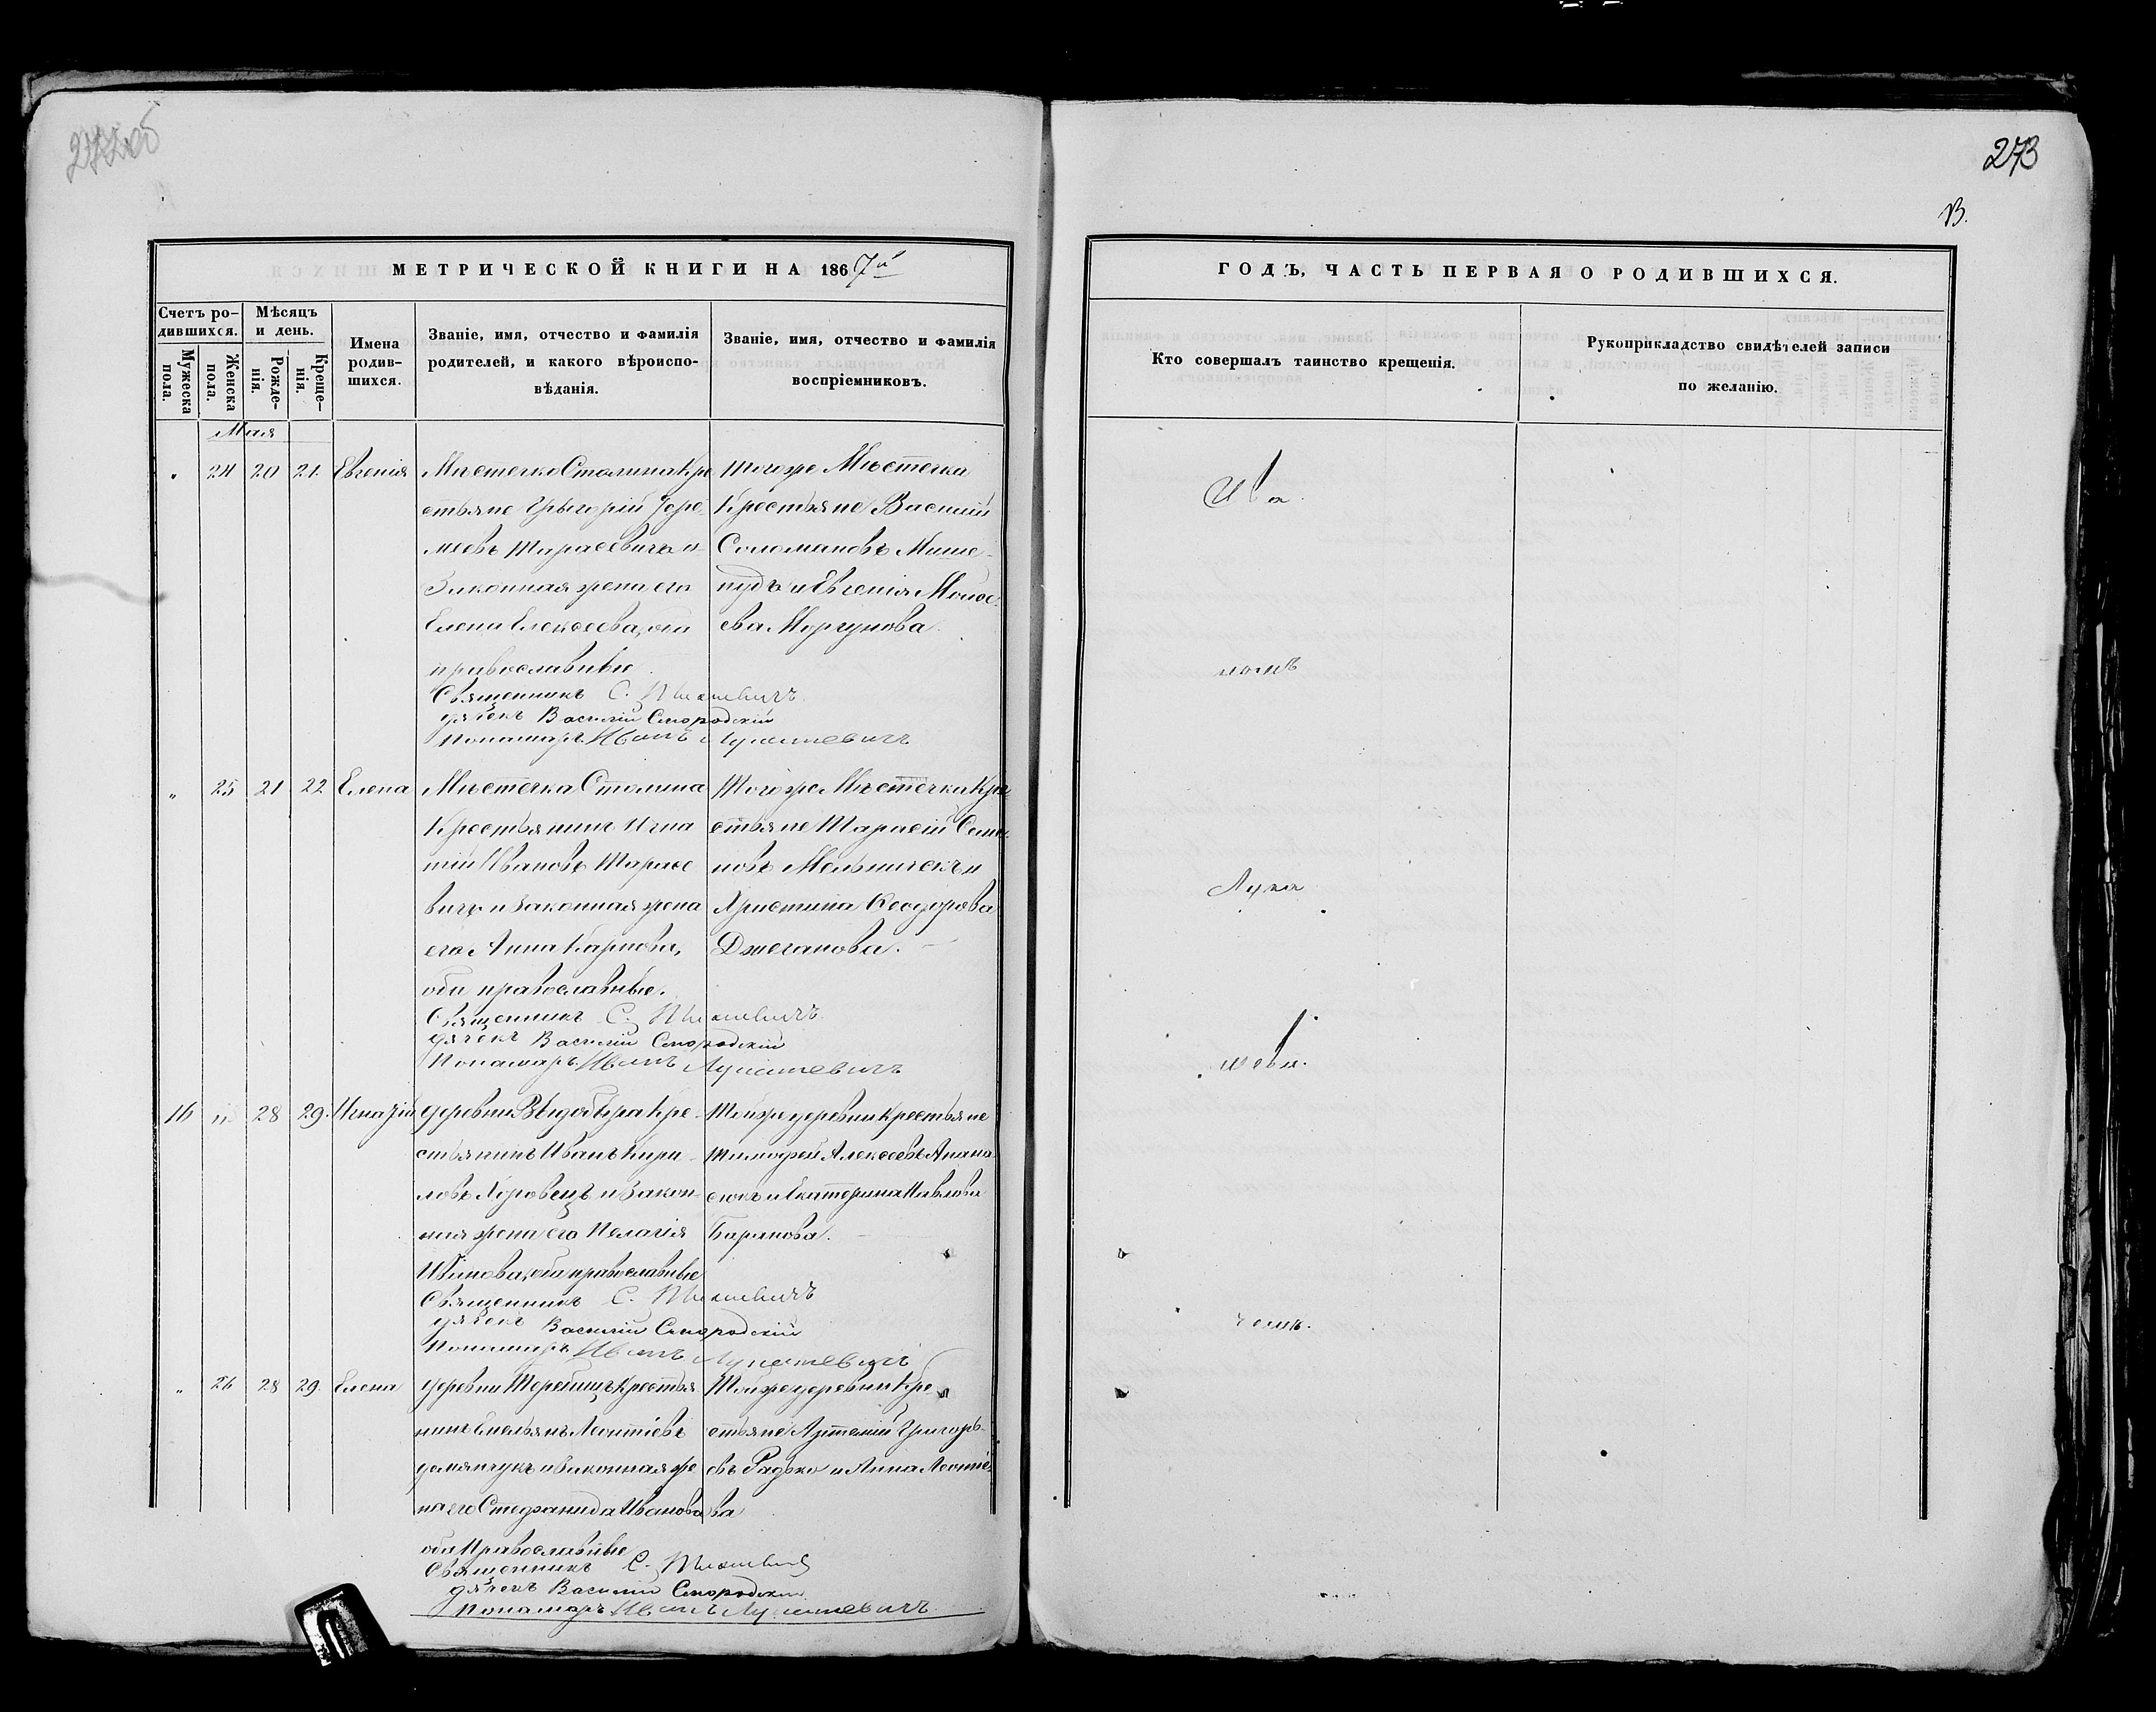 273
МЕТРИЧЕСКОЙ КНИГИ НА 1867й
Счетъ родившихся.
Мужеска пола.
Женска пола.
Мѣсяцъ и день.
Рожденія.
Крещенія.
Имена родившихся.
Званіе, имя, отчество и фамилія родителей, и какого вѣроисповѣданія.
Званіе, имя, отчество и фамилія воспріемниковъ.
Мая
24 20 21. Евгенія
Мѣстечка Столина Кре
стьяне Григорій
Тарасевичъ и
Законная жена его
Елена Елексеева, оба
православные
Священникъ С.
дячекъ Василій Смородскій
Пономарь Иванъ Лукашевичъ
тогоже Мѣстечка
Крестьяне Василій
Соломановъ
и Евгенія Моисе
ева Моргунова.
„ 25 21 22 Елена
Мѣстечка Столина
Крестьянинъ Игна
тій Ивановъ Тарасе
вичъ и Законная жена
его Анна Карпова,
оба православные.
Священникъ С.
дячекъ Василій Смородскій
Пономарь Иванъ Лукашевичъ
Тогоже Мѣстечка Кре
стьяне Тарасій Семе
новъ Мельничекъ и
Христина Ѳеодорова
16 „ 28 29. Игнатій
деревни Кре
стьянинъ Иванъ Кири
ловъ Хоровецъ и Закон
ная жена его Пелагія
Иванова, оба православные
Священникъ С.
дячекъ Василій Смородскій
Пономарь Иванъ Лукашевичъ
Тойже деревни Крестьяне
Тимофей Алексеевъ Апана
сюкъ и Екатерина Павлова
Баранова.
„ 26 28 29. Елена
деревни Теребищъ Крестья
нинъ Емельянъ Леонтіевъ
Демянчукъ и Законная же
на его Стефанида Иванова
оба Православные
Священникъ С.
дячекъ Василій Смородскій
Пономарь Иванъ Лукашевичъ
Тойже деревни Кре
стьяне Артемій Григорь
евъ Радько и Анна Леонтіе
ва
ГОДЪ, ЧАСТЬ ПЕРВАЯ О РОДИВШИХСЯ.
Кто совершалъ таинство крещенія.
Рукоприкладство свидѣтелей записи по желанію.
Ива
номъ
Лука
шеви
чемъ.